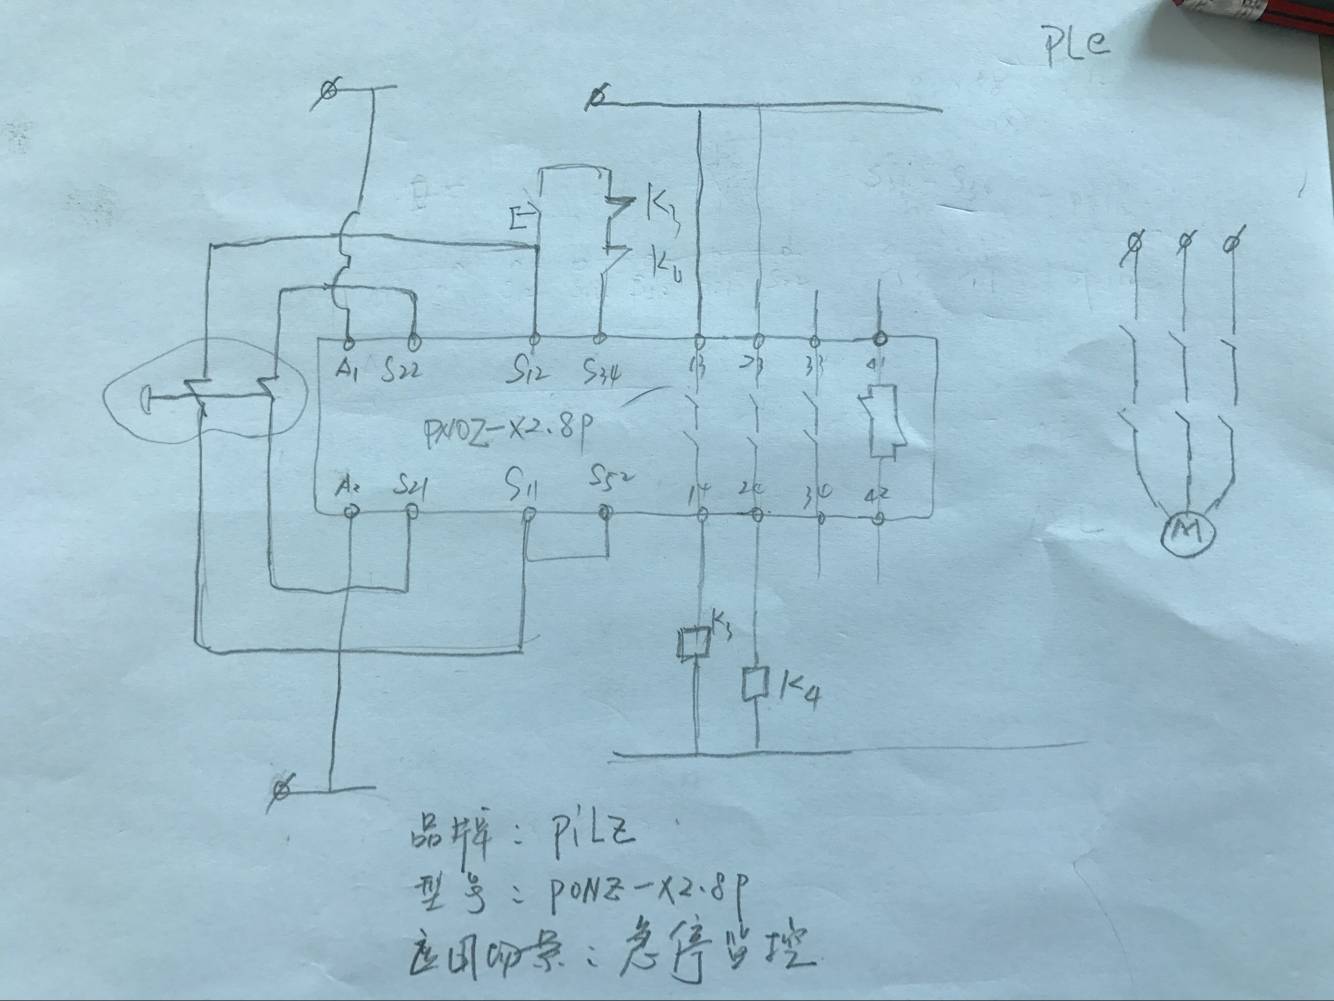 PLe
K3
K4
A1 S22 S12 S34 13 23 33 41
PNOZ-X2.8P
A2 S21 S11 S52 14 24 34 42
M
K3
K4
品牌：PiLZ
型号：PONZ-X2.8P
应用场景：急停监控